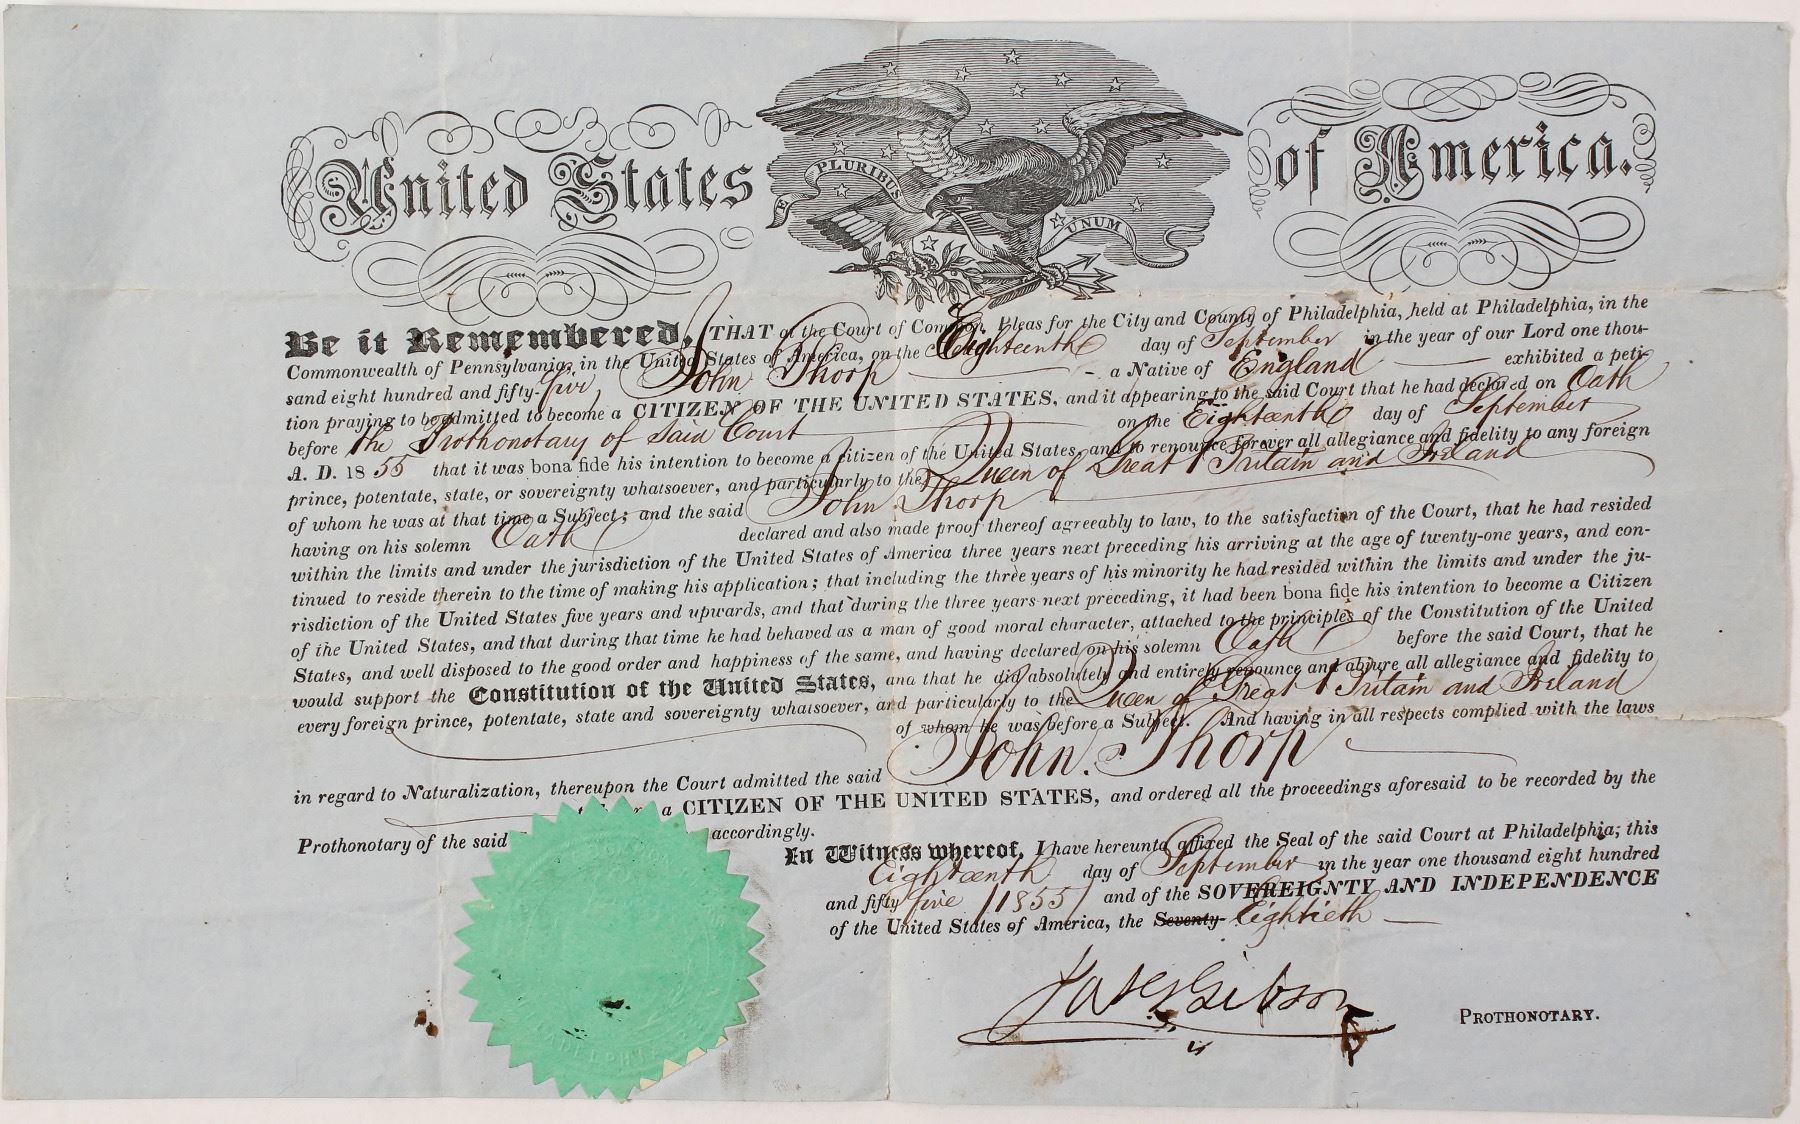 United States of America.
E PLURIBUS UNUM
Be it Remembered, THAT at the Court of Common Pleas for the City and County of Philadelphia, held at Philadelphia, in the
Commonwealth of Pennsylvania, in the United States of America, on the Eighteenth day of September in the year of our Lord one thou-
sand eight hundred and fifty-five, John Thorp - a Native of England exhibited a peti-
tion praying to be admitted to become a CITIZEN OF THE UNITED STATES, and it appearing to the said Court that he had declared on Oath
before the Prothonotary of Said Court on the Eighteenth day of September
A. D. 1855 that it was bona fide his intention to become a citizen of the United States, and to renounce forever all allegiance and fidelity to any foreign
prince, potentate, state, or sovereignty whatsoever, and particularly to the Queen of Great Britain and Ireland
of whom he was at that time a Subject; and the said John Thorp
having on his solemn Oath declared and also made proof thereof agreeably to law, to the satisfaction of the Court, that he had resided
within the limits and under the jurisdiction of the United States of America three years next preceding his arriving at the age of twenty-one years, and con-
tinued to reside therein to the time of making his application; that including the three years of his minority he had resided within the limits and under the ju-
risdiction of the United States five years and upwards, and that during the three years next preceding, it had been bona fide his intention to become a Citizen
of the United States, and that during that time he had behaved as a man of good moral character, attached to the principles of the Constitution of the United
States, and well disposed to the good order and happiness of the same, and having declared on his solemn Oath before the said Court, that he
would support the Constitution of the United States, and that he did absolutely and entirely renounce and abjure all allegiance and fidelity to
every foreign prince, potentate, state and sovereignty whatsoever, and particularly to the Queen of Great Britain and Ireland
of whom he was before a Subject. And having in all respects complied with the laws
in regard to Naturalization, thereupon the Court admitted the said John Thorp
a CITIZEN OF THE UNITED STATES, and ordered all the proceedings aforesaid to be recorded by the
Prothonotary of the said accordingly.
In Witness whereof, I have hereunto affixed the Seal of the said Court at Philadelphia; this
Eighteenth day of September in the year one thousand eight hundred
and fifty five (1855) and of the SOVEREIGNTY AND INDEPENDENCE
of the United States of America, the Seventy- Eightieth
Gibson
PROTHONOTARY.